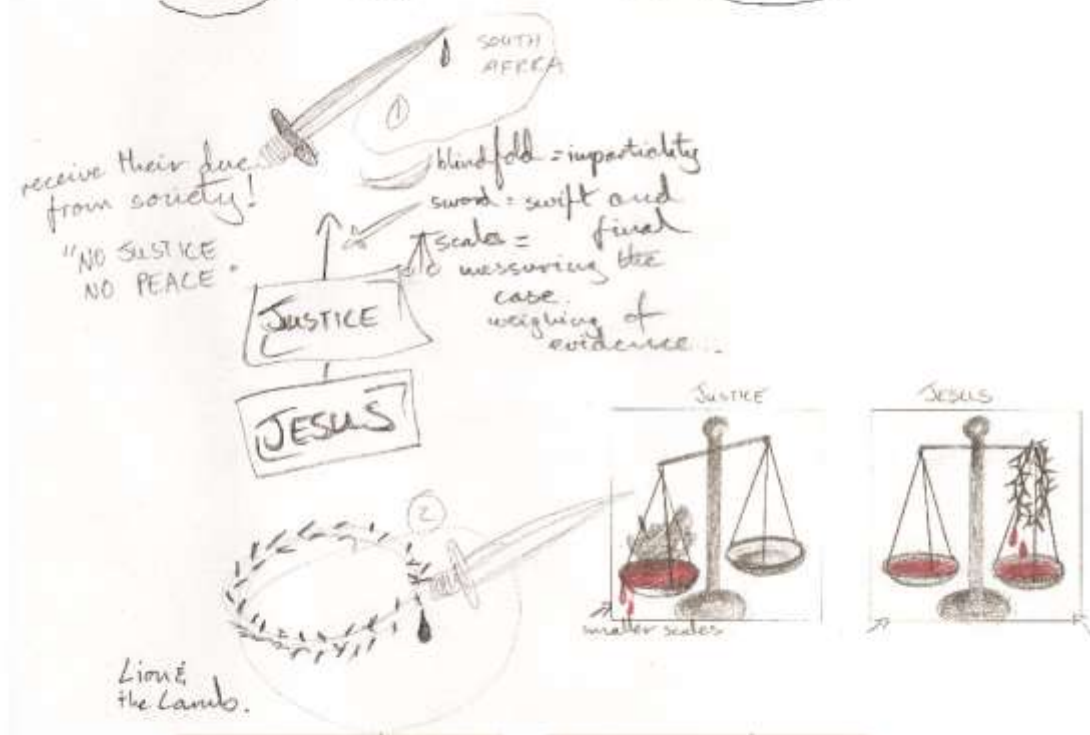 SOUTH
AFRKA
1
receive their due
from society!
"NO JUSTICE
NO PEACE.
blindfold = impartiality
sword = swift and
final
scales =
measuring the
case.
weighing of
evidence...
JUSTICE
JESUS
JUSTICE
JESUS
smaller scales
2
Lion &
the Lamb.